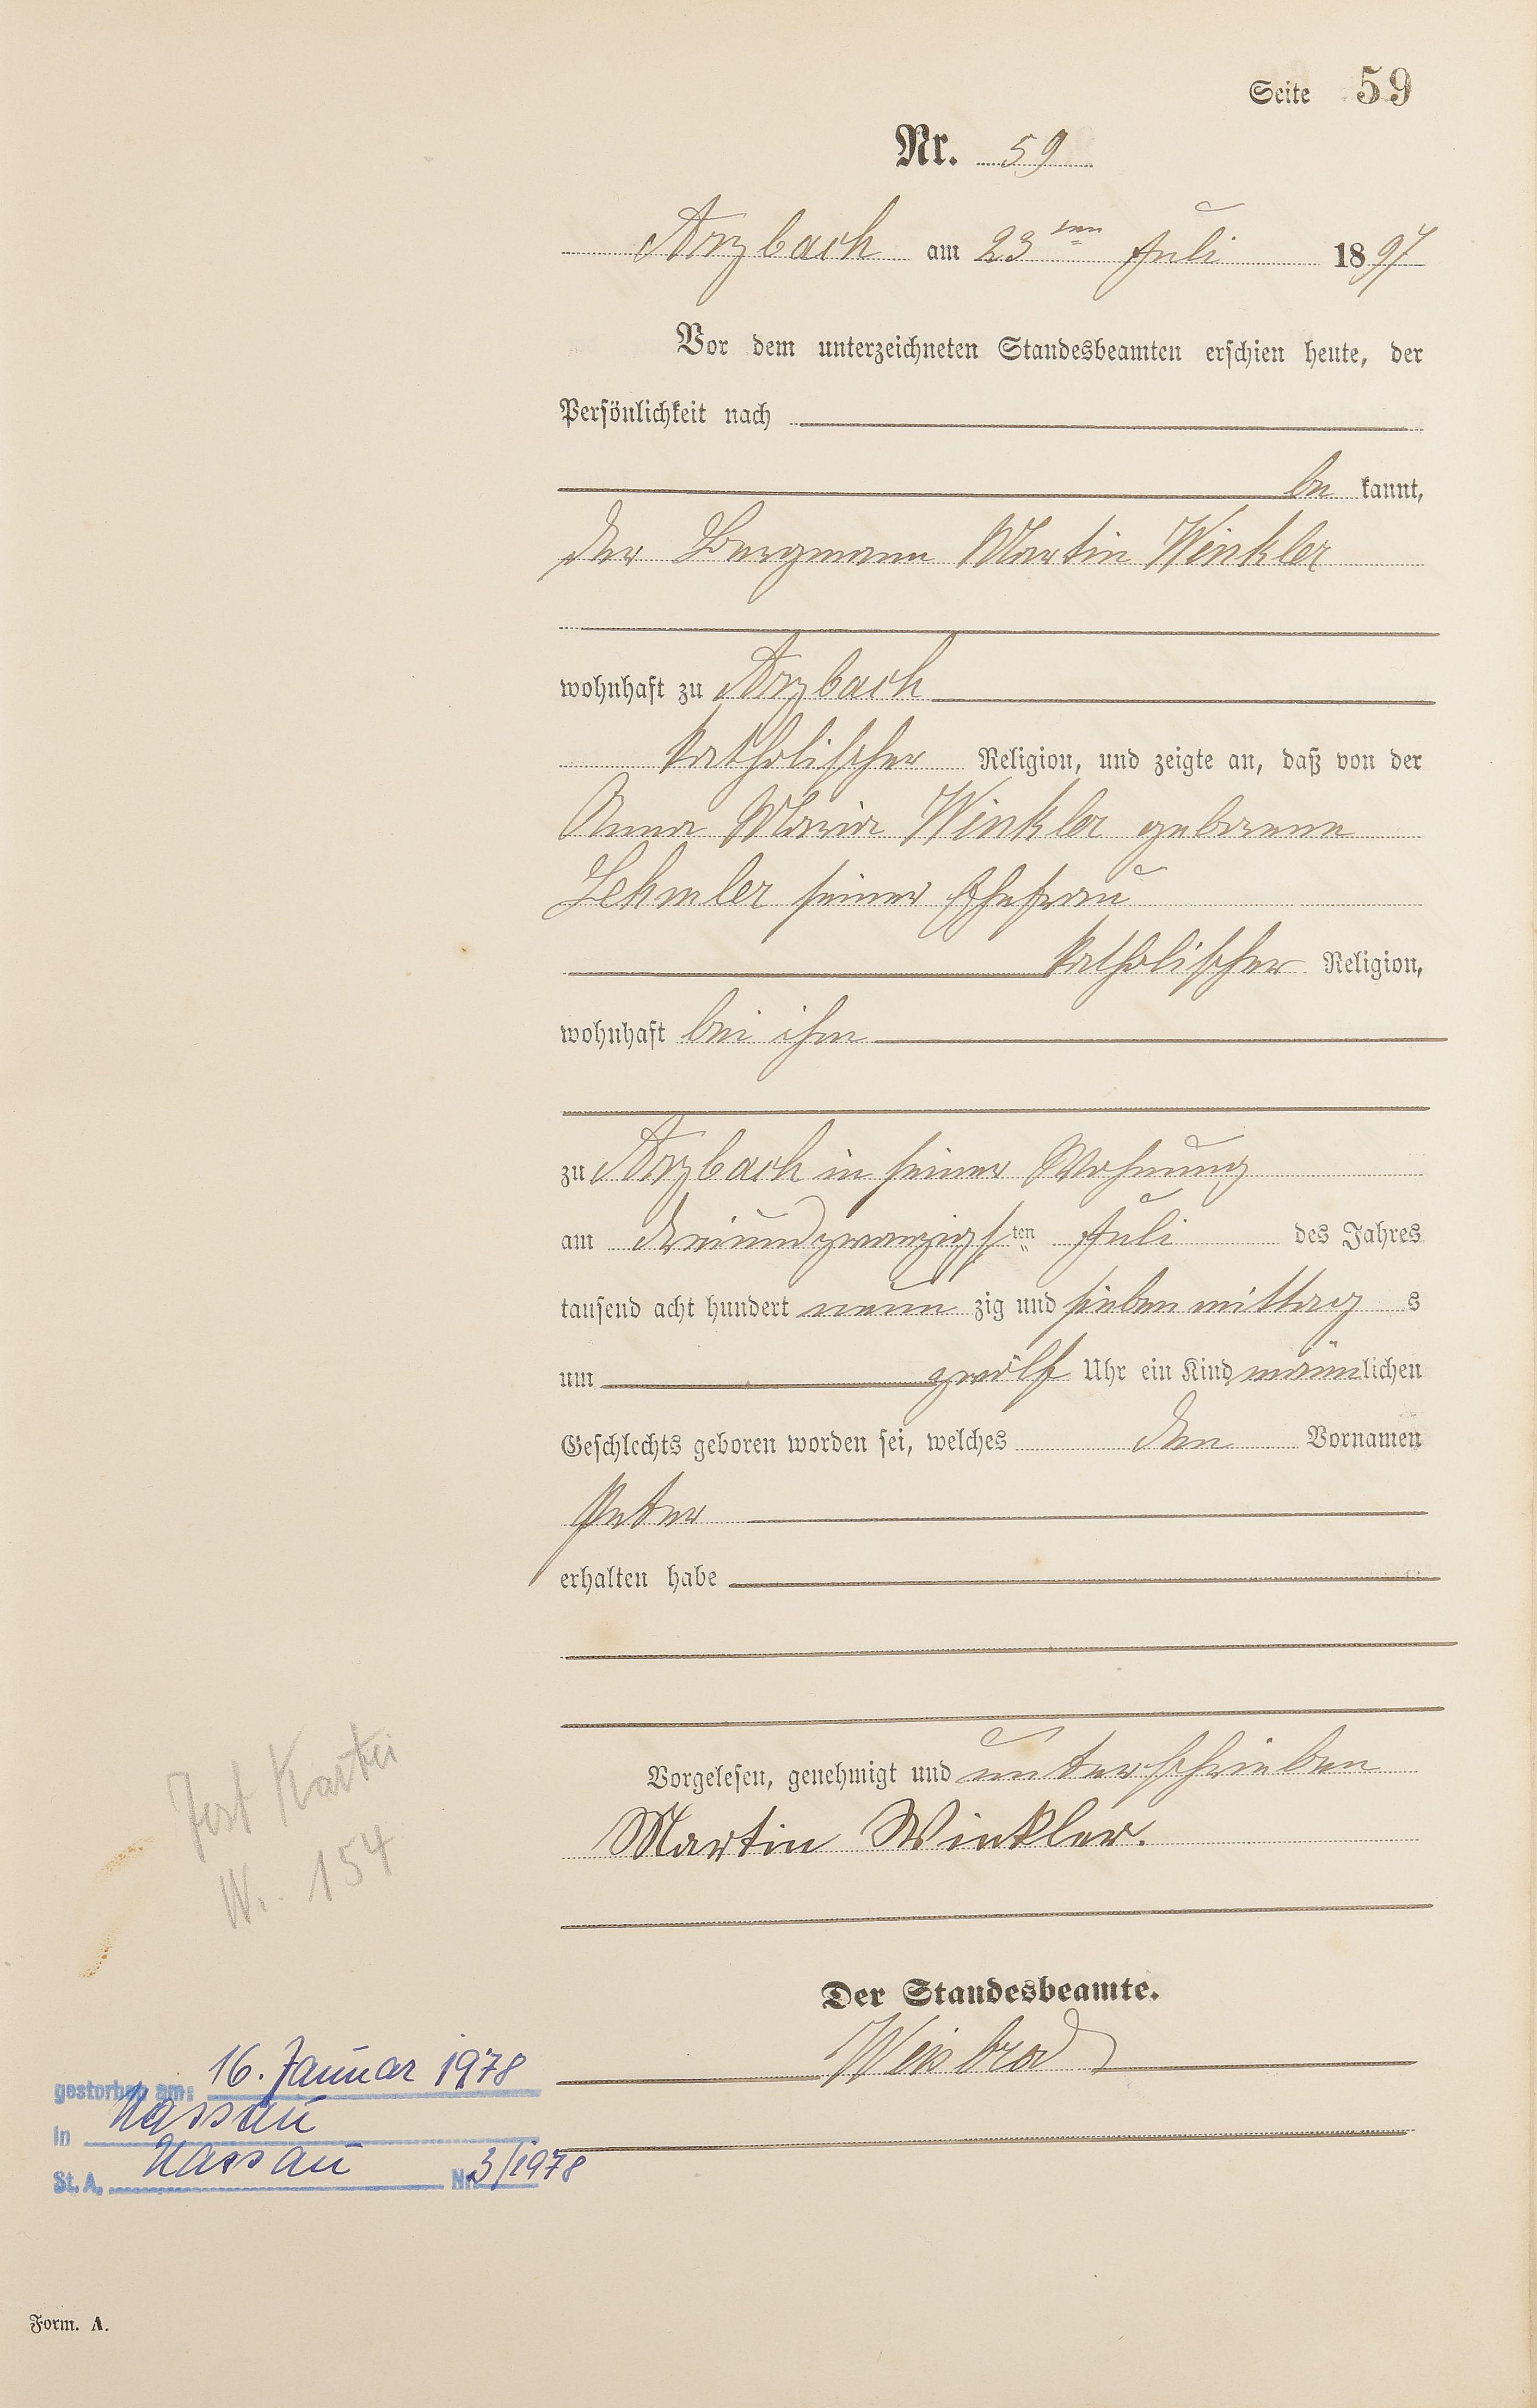 Seite 59
Nr. 59
Arzbach am 23ten Juli 1897
Vor dem unterzeichneten Standesbeamten erschien heute, der
Persönlichkeit nach
be kannt,
der Bergmann Martin Winkler
wohnhaft zu Arzbach
katholischer Religion, und zeigte an, daß von der
Anna Maria Winkler geborene
Lehmler seiner Ehefrau
katholischer Religion,
wohnhaft bei ihm
zu Arzbach in seiner Wohnung
am dreiundzwanzigsten Juli des Jahres
tausend acht hundert neun zig und sieben mittag s
um zwölf Uhr ein Kind männlichen
Geschlechts geboren worden sei, welches den Vornamen
Peter
erhalten habe
Vorgelesen, genehmigt und unterschrieben
Martin Winkler.
Der Standesbeamte.
Weisbrod
Kartei
Nr. 154
gestorben am: 16. Januar 1978
in Nassau
St. A. Nassau Nr. 3/1978
Form. A.